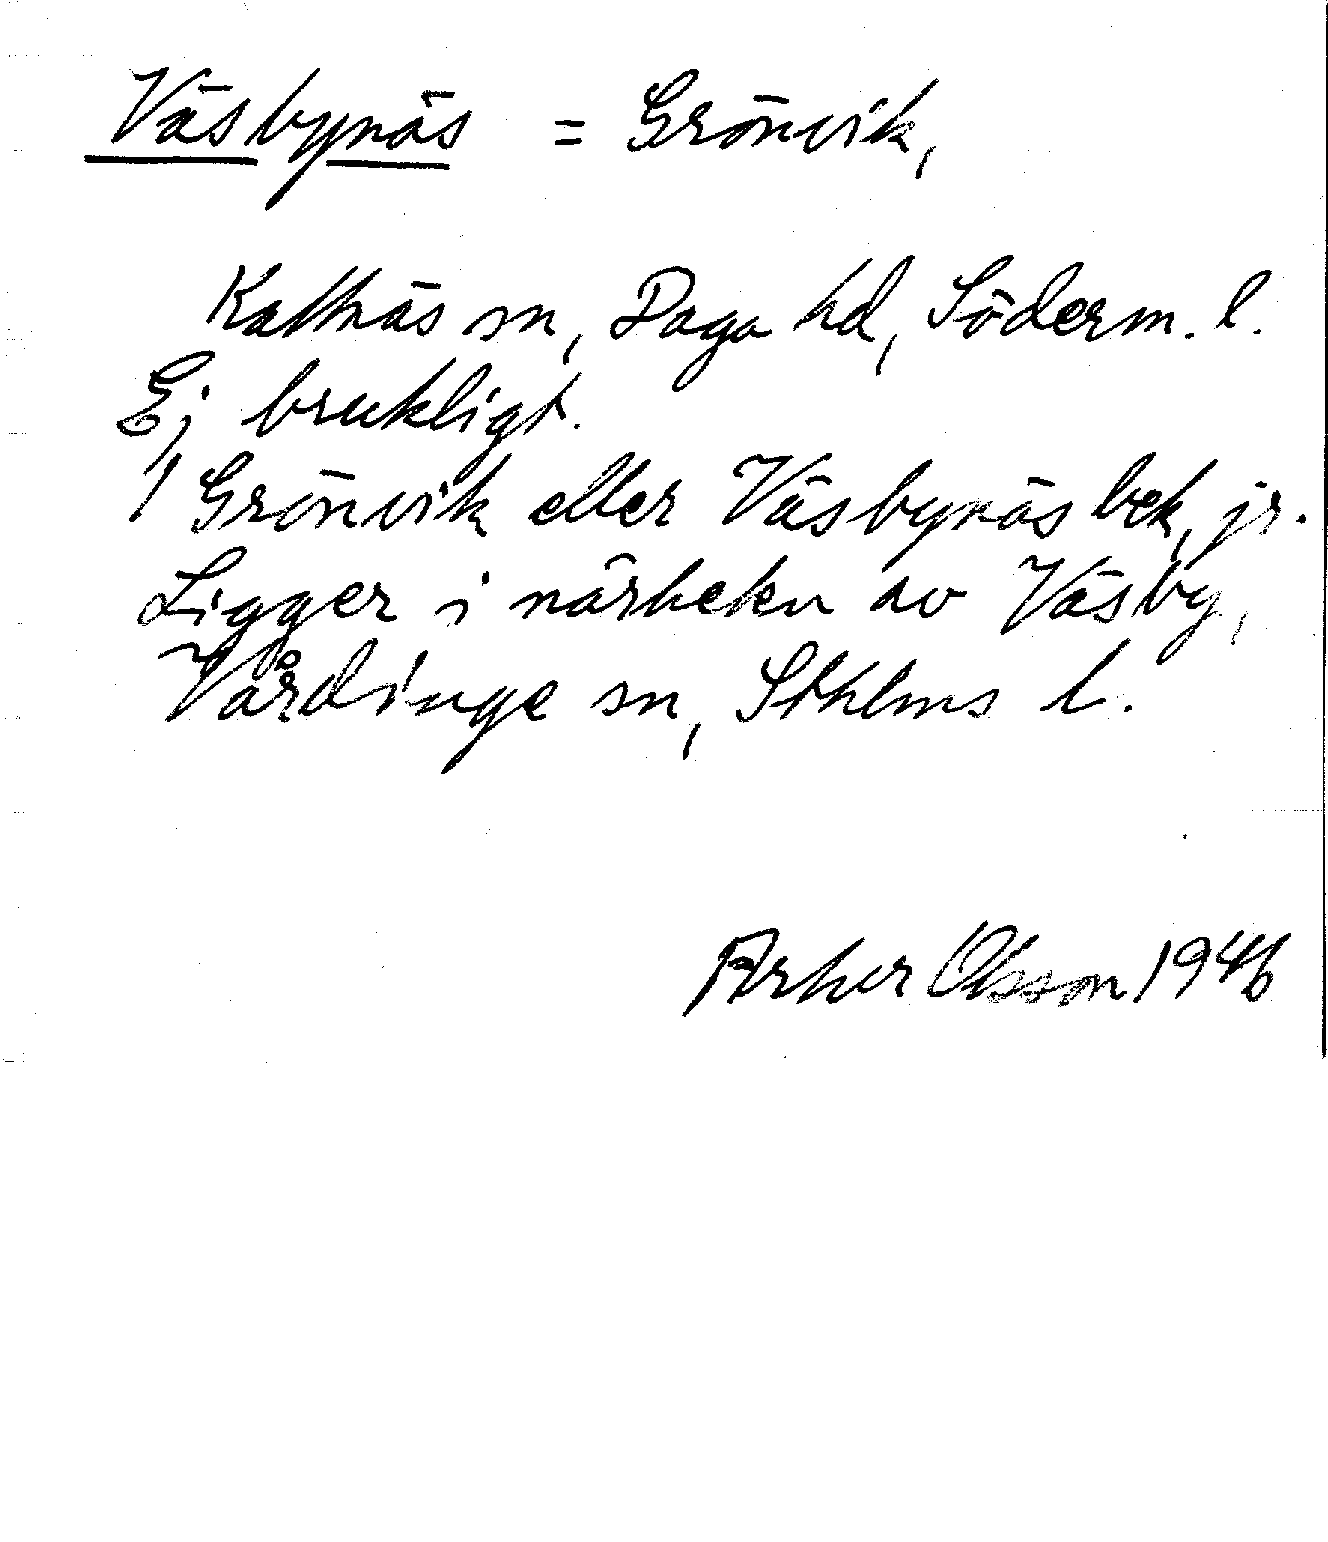 Väsbynäs = Grönvik,
Kattnäs sn, Daga hd, Söderm. l.
Ej brukligt.
/ Grönvik eller Väsbynäs bek, jr.
Ligger i närheten av Väsby,
Vårdinge sn, Sthlms l.
Olsson 1946